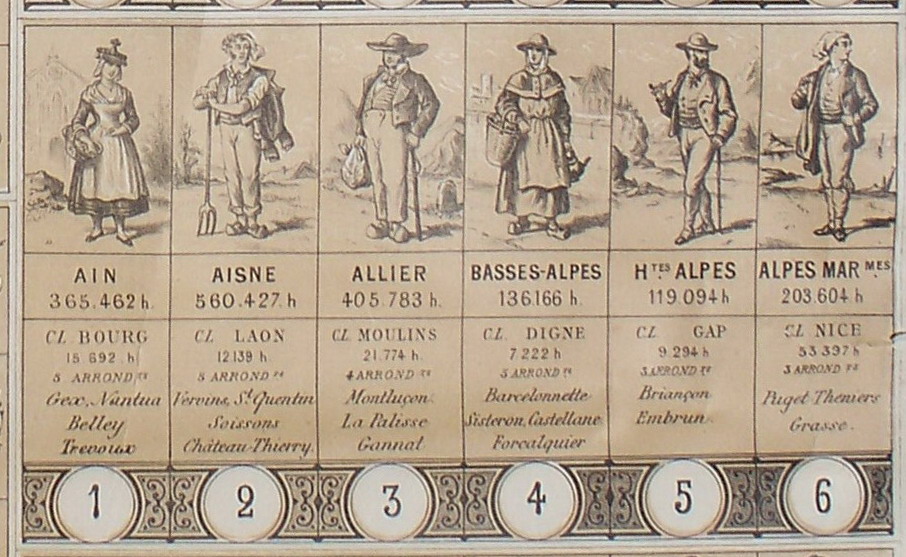 AIN
365.462 h.
Cl. BOURG
15 692 h
5 ARROND.ts
Gex, Nantua
Belley
Trevoux
1
AISNE
560.427. h
Cl. LAON
12139 h
5 ARROND.ts
Vervins, St. Quentin
Soissons
Château-Thierry.
2
ALLIER
405.783 h.
Cl. MOULINS
21.774 h.
4 ARROND.ts
Montluçon
La Palisse
Gannat
3
BASSES-ALPES
136.166 h.
Cl. DIGNE
7 222 h
5 ARROND.ts
Barcelonnette
Sisteron, Castellane
Forcalquier
4
HTES ALPES
119.094 h
Cl. GAP
9 294 h
3 ARROND.ts
Briançon
Embrun.
5
ALPES MARMES
203.604 h
Cl. NICE
53 397 h
3 ARROND.ts
Puget Theniers
Grasse.
6